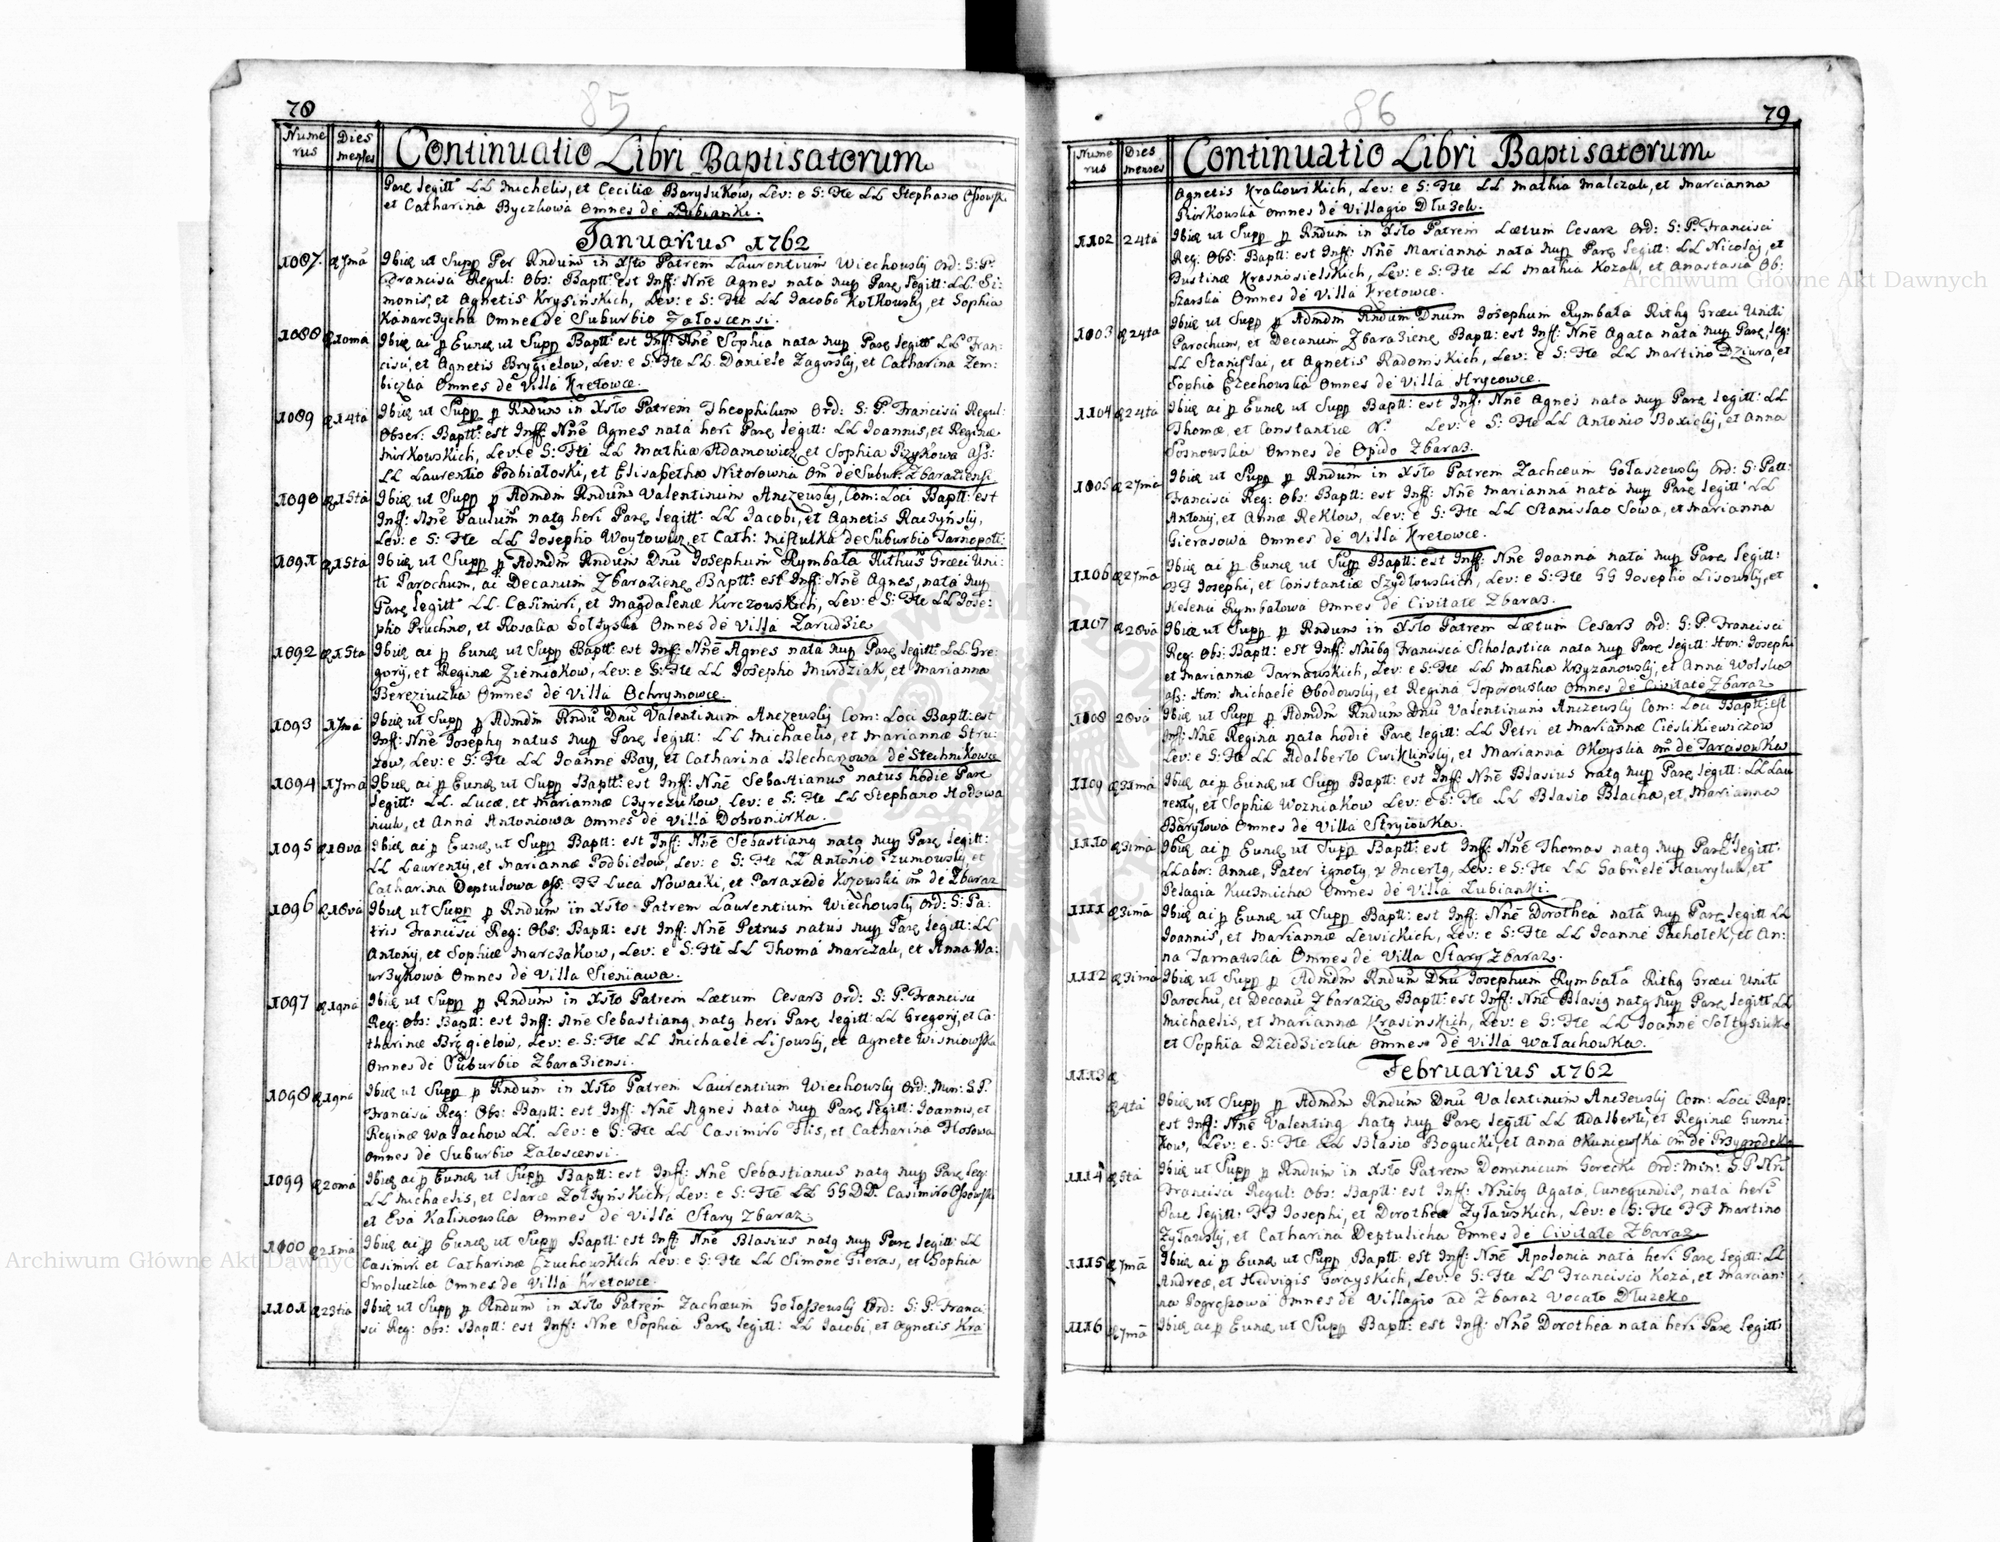 78
85
Nume
rus
Dies
menses
Continuatio Libri Baptisatorum
Parę legitt: LL Michaelis, et Ceciliæ Barylukow, Lev: e S: Fte LL Stephano
et Catharina Byczkowa Omnes de Lubianki.
Januarius 1762
1087. 7ma Ibidę ut Supp Per Rndum in Xsto Patrem Laurentium Wiechowsly Ord: S: P.
Francisci Regul: Obs: Baptt: est Inff: Nnē Agnes nata nup Parę legitt: LL Si:
monis, et Agnetis Krysinskich, Lev: e S: Fte LL Jacobo Kotkowsky, et Sophia
Kanarczycha Omnes de Suburbio Załoscensi.
1088 10ma Ibidę ai p Eundę ut Supp Baptt: est Inff: Nnē Sophia nata nup Parę legitt LL Fran:
cisci, et Agnetis Brygielow, Lev: e S: Fte LL Daniele Zagorsly, et Catharina Zem:
biczka Omnes de Villa Kretowce.
1089 14ta Ibidę ut Supp p Rndum in Xsto Patrem Theophilum Ord: S: P Francisci Regul:
Obser: Baptt: est Inff: Nnē Agnes nata heri Parę legitt: LL Joannis, et Reginæ
Mirkowskich, Lev: e S: Fte LL Mathia Adamowicz, et Sophia Pizykowa Ass:
LL Laurentio Podbiałoski, et Elisabetha Nitorowna Om de Subur: Zbaraziensi
1090 15ta Ibidę ut Supp p Admdm Rndum Valentinum Anczewsly, Com: Loci Baptt: est
Inff: Nnē Paulum natę heri Parę legitt: LL Jacobi, et Agnetis Raczynsly,
Lev: e S: Fte LL Josepho Woytowicz, et Cath: de Suburbio Tarnopoli
1091 15ta Ibidę ut Supp p Admdm Rndum Dnū Josephum Rymbała Rithus Græci Uni:
ti Parochum, ai Decanum Zbarazienę Baptt: est Inff: Nnē Agnes, nata nup
Parę legitt: LL Casimiri, et Magdalenæ Korczowskich, Lev: e S: Fte LL Jose:
pho Pruchno, et Rosalia Soltyska Omnes de Villa Zarudzie
1092 15ta Ibidę ai p Eundę ut Supp Baptt: est Inff: Nnē Agnes nata nup Parę legitt: LL Gre:
gorij, et Reginæ Ziemiakow, Lev: e S: Fte LL Josepho Murdziak, et Marianna
Bereziuczka Omnes de Villa Ochrymowce.
1093 17ma Ibidę ut Supp p Admdm Rndū Dnū Valentinum Anczewsly Com: Loci Baptt: est
Inff: Nnē Josephę natus nup Parę legitt: LL Michaelis, et Mariannæ Stru:
zow, Lev: e S: Fte LL Joanne Bay, et Catharina Blechanowa de Stechnikowce
1094 17ma Ibidę ai p Eundę ut Supp Baptt: est Inff: Nnē Sebastianus natus hodie Parę
legitt: LL Lucæ, et Mariannæ Czyreziukow, Lev: e S: Fte LL Stephano Hodowa
niuk, et Anna Antoniowa Omnes de Villa Dobromirka.
1095 18va Ibidę ai p Eundę ut Supp Baptt: est Inff: Nnē Sebastianę natę nup Parę legitt:
LL Laurentij, et Mariannæ Podbielow, Lev: e S: Fte LL Antonio Szumowsly, et
Catharina Deptulowa Ass: FF Luca Nowacki, et Paraxede Kozowska om de Zbaraz
1096 18va Ibidę ut Supp p Rndum in Xsto Patrem Laurentium Wiechowsly Ord: S: Pa:
tris Francisci Reg: Obs: Baptt: est Inff: Nnē Petrus natus nup Parę legitt: LL
Antonij, et Sophiæ Marczakow, Lev: e S: Fte LL Thoma Marczak, et Anna Wa:
wrzykowa Omnes de Villa Sieniawa.
1097 19na Ibidę ut Supp p Rndum in Xsto Patrem Lætum Cesarz Ord: S: P. Francisci
Reg: Obs: Baptt: est Inff: Nnē Sebastianę natę heri Parę legitt: LL Gregorij, et Ca:
tharinæ Bręgielow, Lev: e S: Fte LL Michaele Lisowsly, et Agnete Wisniowska
Omnes de Suburbio Zbaraziensi.
1098 19na Ibidę ut Supp p Rndum in Xsto Patrem Laurentium Wiechowsly Ord: Min: S.P.
Francisci Reg: Obs: Baptt: est Inff: Nnē Agnes nata nup Parę legitt: Joannis, et
Reginæ Wałachow LL. Lev: e S: Fte LL Casimiro Flis, et Catharina Hołowa
Omnes de Suburbio Załoscensi.
1099 20ma Ibidę ai p Eundę ut Supp Baptt: est Inff: Nnē Sebastianus natę nup Parę leg:
LL Michaelis, et Claræ Zołzynskich, Lev: e S: Fte LL GGDD. Casimiro
et Eva Kalinowska Omnes de Villa Stary Zbaraz.
1100 21ma Ibidę ai p Eundę ut Supp Baptt: est Inff: Nnē Blasius natę nup Parę legitt: LL
Casimiri et Catharinæ Czuchowskich Lev: e S: Fte LL Simone Gieras, et Sophia
Smoluczka Omnes de Villa Kretowce.
1101 23tia Ibidę ut Supp p Rndum in Xsto Patrem Zachæum Gołaszewsly Ord: S: P. Franci
sci Reg: Obs: Baptt: est Inff: Nnē Sophia Parę legitt: LL Jacobi, et Agnetis Kra
79
86
Nume
rus
Dies
menses
Continuatio Libri Baptisatorum
Agnetis Krakowskich, Lev: e S: Fte LL Mathia Malczak, et Marcianna
Piorkowska Omnes de Villagio Dłuzek.
1102 24ta Ibidę ut Supp p Rndum in Xsto Patrem Lætum Cesarz Ord: S: P. Francisci
Reg: Obs: Baptt: est Inff: Nnē Marianna nata nup Parę legitt: LL Nicolaj, et
Justinæ Krasnosielskich, Lev: e S: Fte LL Mathia Kozak, et Anastasia Ob:
szarska Omnes de Villa Kretowce.
1103 24ta Ibidę ut Supp p Admdm Rndum Dnum Josephum Rymbała Rithę Græci Uniti
Parochum, et Decanum Zbarazienę Baptt: est Inff: Nnē Agata nata nup Parę leg:
LL Stanislai, et Agnetis Radomskich, Lev: e S: Fte LL Martino Dziura, et
Sophia Czechowska Omnes de Villa Hrycowce.
1104 24ta Ibidę ai p Eundę ut Supp Baptt: est Inff: Nnē Agnes nata nup Parę legitt: LL
Thomæ, et Constantiæ N. Lev: e S: Fte LL Antonio Boxicky, et Anna
Sosnowska Omnes de Opido Zbaraz.
1105 27ma Ibidę ut Supp p Rndum in Xsto Patrem Zachæum Gołaszewsly Ord: S: Patt:
Francisci Reg: Obs: Baptt: est Inff: Nnē Marianna nata nup Parę legitt: LL
Antonij, et Annæ Reklow, Lev: e S: Fte LL Stanislao Sowa, et Marianna
Gierasowa Omnes de Villa Kretowce.
1106 27ma Ibidę ai p Eundę ut Supp Baptt: est Inff: Nnē Joanna nata nup Parę legitt:
FF Josephi, et Constantiæ Szydłowskich, Lev: e S: Fte GG Josepho Lisowsly, et
Helena Rymbałowa Omnes de Civitate Zbaraz.
1107 28va Ibidę ut Supp p Rndum in Xsto Patrem Lætum Cesarz Ord: S: P Francisci
Reg: Obs: Baptt: est Inff: Nnibę Francisca Scholastica nata nup Parę legitt: Hon: Josephi
et Mariannæ Tarnowskich, Lev: e S: Fte LL Mathia Krzyzanowsly, et Anna Wolska
ass: Hon: Michaele Obodowsly, et Regina Toporowska Omnes de Civitate Zbaraz
1108 28va Ibidę ut Supp p Admdm Rndum Dnū Valentinum Anczewsly Com: Loci Baptt: est
Inff: Nnē Regina nata hodie Parę legitt: LL Petri et Mariannæ Cieslikiewiczow
Lev: e S: Fte LL Adalberto Cwiklinsly, et Marianna Okoyska om de Tarasowka
1109 31ma Ibidę ai p Eundę ut Supp Baptt: est Inff: Nnē Blasius natę nup Parę legitt: LL Lau
rentij, et Sophiæ Wozniakow Lev: e S: Fte LL Blasio Blacha, et Marianna
Baryłowa Omnes de Villa Stryiowka.
1110 31ma Ibidę ai p Eundę ut Supp Baptt: est Inff: Nnē Thomas natę nup Parę legitt:
LLabor: Annæ, Pater ignotę, v Incertę, Lev: e S: Fte LL Gabriele Hawryluk, et
Pelagia Kuczmicha Omnes de Villa Lubianki.
1111 31ma Ibidę ai p Eundę ut Supp Baptt: est Inff: Nnē Dorothea nata nup Parę legitt LL
Joannis, et Mariannæ Lewickich, Lev: e S: Fte LL Joanne Pachołek, et An:
na Tarnawska Omnes de Villa Stary Zbaraz.
1112 31ma Ibidę ut Supp p Admdm Rndum Dnū Josephum Rymbała Rithę Græci Uniti
Parochū, et Decanū Zbarazię Baptt: est Inff: Nnē Blasię natę nup Parę legitt: LL
Michaelis, et Mariannæ Krasinskich, Lev: e S: Fte LL Joanne Sołtysiuk
et Sophia Dziedziczka Omnes de Villa Wałachowka.
Februarius 1762
1113
4ta Ibidę ut Supp p Admdm Rndum Dnū Valentinum Anczewsly Com: Loci Bap:
est Inff: Nnē Valentinę natę nup Parę legitt LL Adalberti, et Reginæ Gurni:
kow, Lev: e S: Fte LL Blasio Bogucki, et Anna Okuniewska om de Przygrodek
1114 5ta Ibidę ut Supp p Rndum in Xsto Patrem Dominicum Gorecki Ord: Min: S P Nri
Francisci Regul: Obs: Baptt: est Inff: Nnibę Agata, Cunegundis, nata heri
Parę legitt: FF Josephi, et Dorotheæ Zyławskich, Lev: e S: Fte FF Martino
Zyławsly, et Catharina Deptulicha Omnes de Civitate Zbaraz.
1115 7ma Ibidę ai p Eundę ut Supp Baptt: est Inff: Nnē Apolonia nata heri Parę legitt: LL
Andreæ, et Hedvigis Gorayskich, Lev: e S: Fte LL Francisco Koza, et Marcian:
na Pogrszowa Omnes de Villagio ad Zbaraz Vocato Dłuzek.
1116 7ma Ibidę ai p Eundę ut Supp Baptt: est Inff: Nnē Dorothea nata heri Parę legitt:
Archiwum Główne Akt Dawnych
Archiwum Główne Akt Dawnych